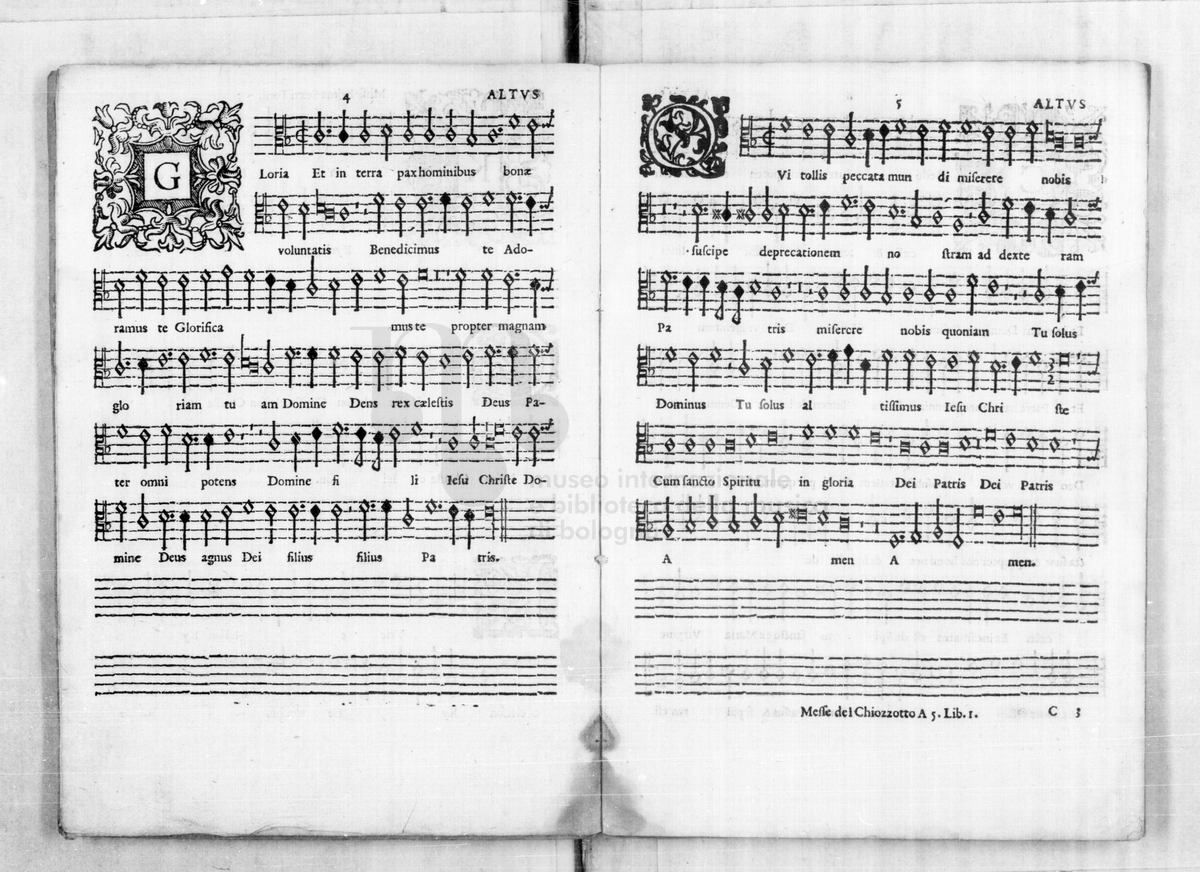 4 ALTVS
G
Loria Et in terra pax hominibus bonæ
voluntatis Benedicimus te Ado-
ramus te Glorifica mus te propter magnam
glo riam tu am Domine Deus rex cælestis Deus Pa-
ter omni potens Domine fi li Iesu Christe Do-
mine Deus agnus Dei filius filius Pa tris.
5 ALTVS
Q
Vi tollis peccata mun di miserere nobis
suscipe deprecationem no stram ad dexte ram
Pa tris miserere nobis quoniam Tu solus
Dominus Tu solus al tissimus Iesu Chri ste
3
2
Cum sancto Spiritu in gloria Dei Patris Dei Patris
A men A men.
Messe del Chiozzotto A 5. Lib. 1. C 3
museo internazionale
e biblioteca della musica
di bologna